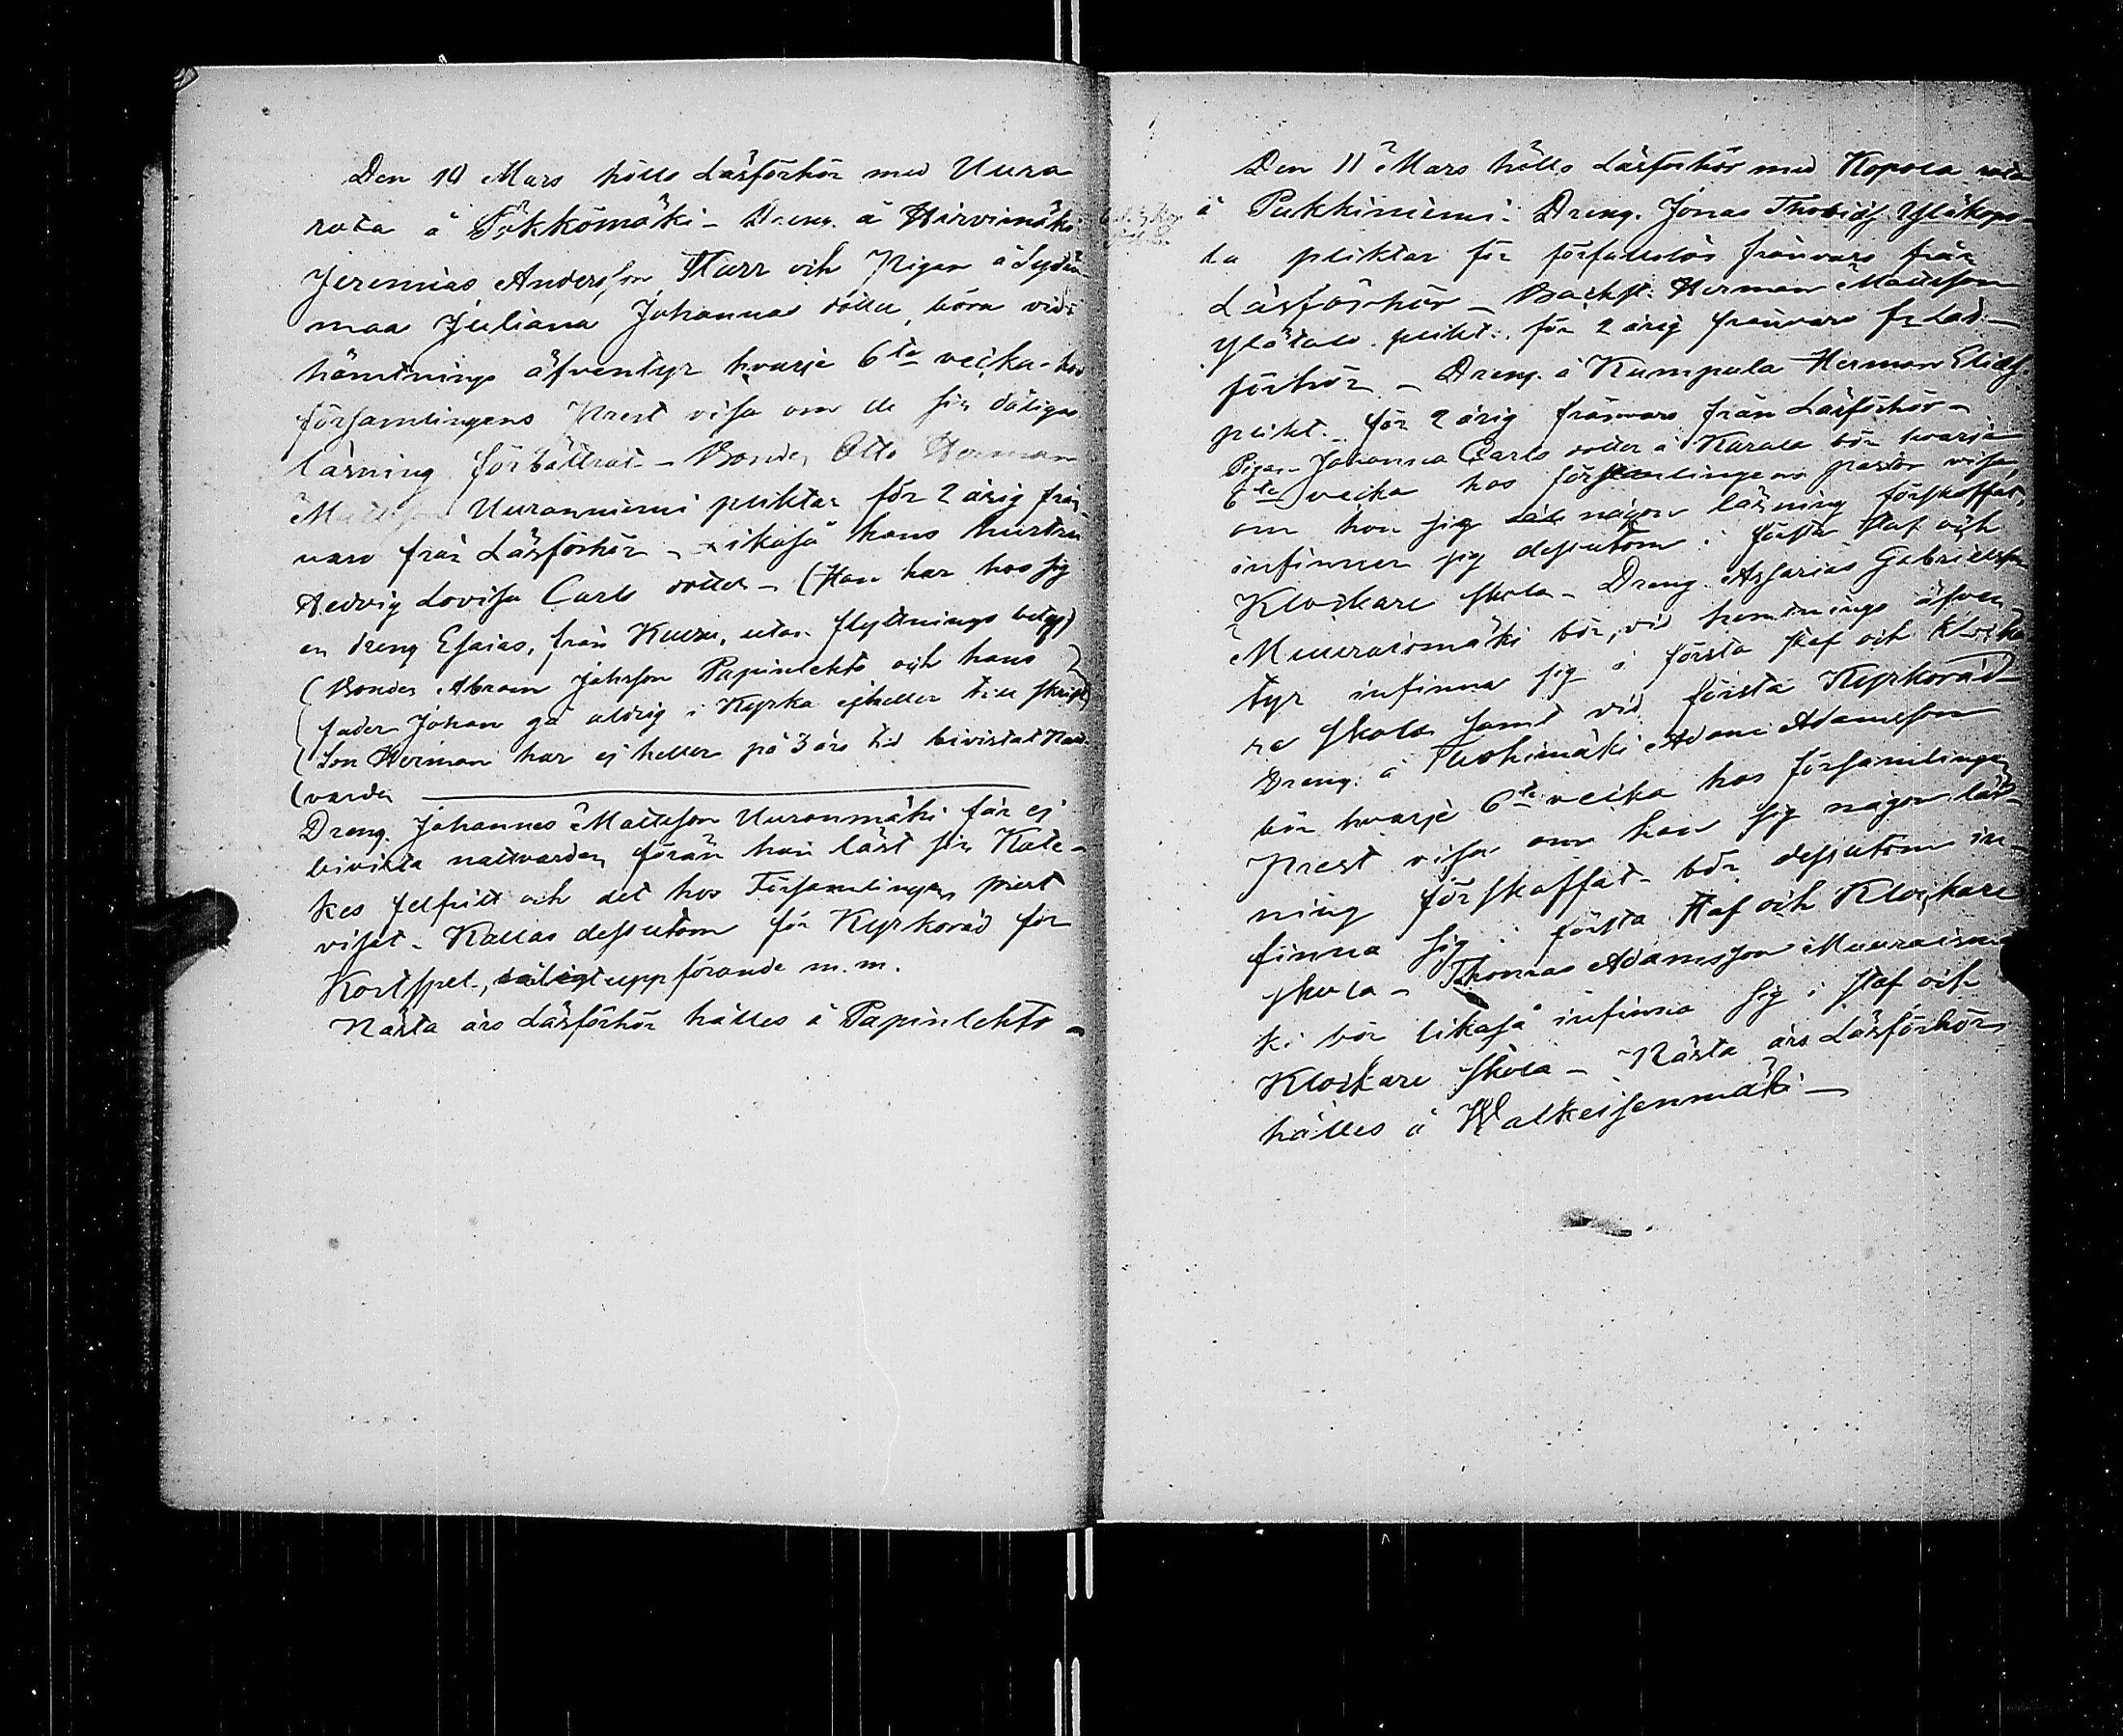 Den 10 Mars hölls Läsförhör med Uura
rota å Pökkömäki - Dreng. å Hirvimäki
Jeremias Andersson Hurr och Pigan å Sydän
maa Juliana Johannas dotter, böra vid
hämtnings äfventyr hvarje 6te vecka hos
församlingens Prest visa om de sin dåliga
läsning förbättrat - Bonden Otto Herman
Mattsson Uuranniemi pliktar för 2 årig från-
varo från Läsförhör - likaså hans hustru
Hedvig Lovisa Carls dotter - (Han har hos sig
en dreng Esaias, från Kuure, utan flyttnings betyg)
(Bonden Abram Johsson Papinlehto och hans
fader Johan gå aldrig i Kyrka ejheller till skrift)
(Son Herman har ej heller på 3 års tid bivistat Natt-
(varden
Dreng. Johannes Mattsson Uuronmäki får ej
bivista nattvarden förän han läst sin Kate-
kes felfritt och det hos Församlingens prest
visat. Kallas dessutom för Kyrkoråd för
Kortspel, dåligt uppförande m.m.
Nästa års Läsförhör hålles å Papinlehto -
Den 11 Mars hölls Läsförhör med Kopola rota
å Pukkiniemi. Dreng. Jonas Thobias Yläkopo-
la pliktar för förfallolös frånvaro från
Läsförhör - Backst. Herman Mattsson
Ylätalo plikt. för 2 årig frånvaro fr. Läs-
förhör - Dreng. å Kumpula Herman Eliass.
plikt. för 2 årig frånvaro från Läsförhör -
Pigan Johanna Carls dotter å Karala bör hvarje
6te vecka hos församlingens pastor visa,
om hon sig någon läsning förskaffat,
infinner sig dessutom i första staf och
Klockare skola - Dreng. Assarias Gabrielsson
Muuraismäki bör, vid hemtnings äfven-
tyr infinna sig i första staf och Klocka
re skola samt vid första Kyrkoråd
Dreng. å Tuohimäki Adam Adamsson
bör hvarje 6te vecka hos församlingens
Prest visa om han sig någon läs-
ning förskaffat - bör dessutom in-
finna sig i första Staf och Klockare
skola - Thomas Adamsson Muuraismä
ki bör likaså infinna sig i staf och
Klockare skola - Nästa års Läsförhör
hålles å Walkeisenmäki -